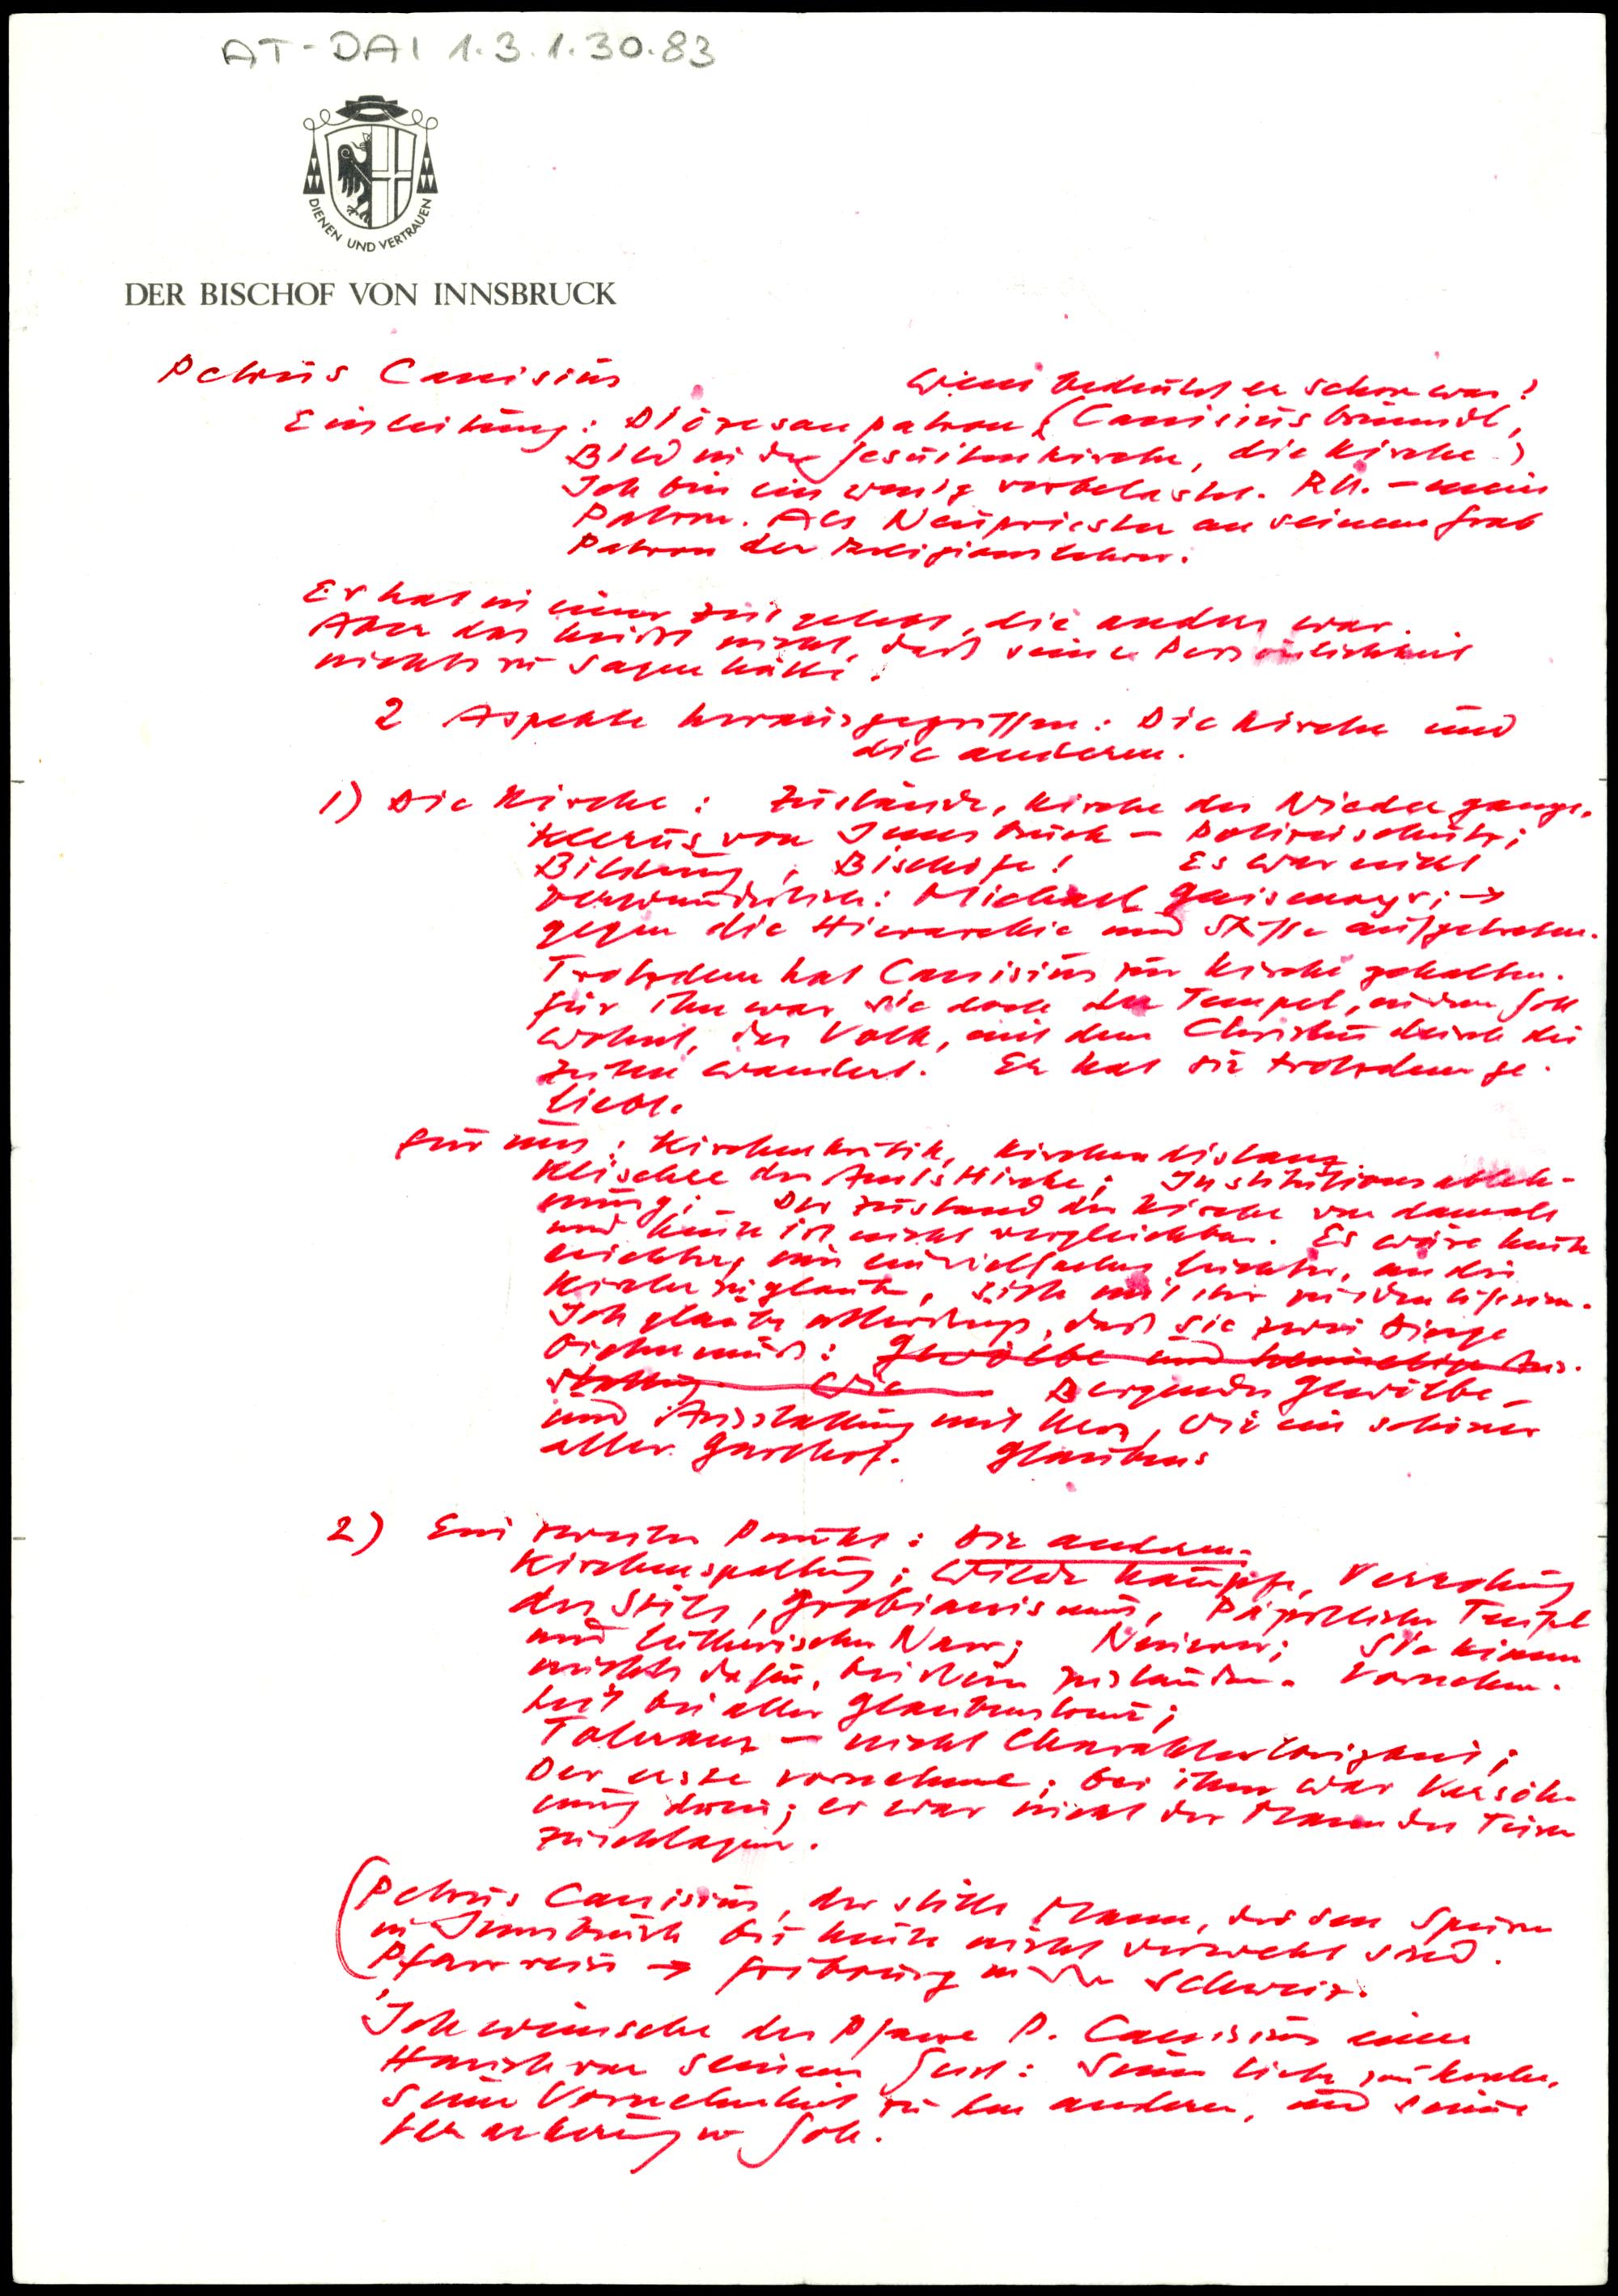 AT-DAI 1.3.1.30.83
DIENEN UND VERTRAUEN
DER BISCHOF VON INNSBRUCK
Petrus Canisius
Wem bedeutet er schon was?
Einleitung: Diözesanpatron (Canisiusbründl,
Bild in der Jesuitenkirche, die Kirche)
Ich bin ein wenig vorbelastet. Rh. - mein
Patron. Als Neupriester an seinem Grab
Patron der Religionslehrer.
Er hat in einer Zeit gelebt, die anders war.
Aber das heißt nicht, daß seine Persönlichkeit
nichts zu sagen hätte.
2 Aspekte herausgegriffen: Die Kirche und
die anderen.
1) Die Kirche: Zustände, Kirche des Niedergangs.
Klerus von Innsbruck - Polizeischutz;
Bildung, Bischöfe! Es war nicht
verwunderlich: Michael Gaismayr; →
gegen die Hierarchie und Stifte aufgetreten.
Trotzdem hat Canisius zur Kirche gehalten.
Für ihn war sie doch der Tempel, in dem Gott
wohnt, das Volk, mit dem Christus durch die
Zeiten wandert. Er hat sie trotzdem ge-
liebt.
Für uns: Kirchenkritik, Kirchendistanz.
Klischee der Amtskirche; Institutionsableh-
nung; Der Zustand der Kirche von damals
und heute ist nicht vergleichbar. Es wäre heute
um ein vielfaches leichter, an die
Kirche zu glauben, sich mit ihr zu identifizieren.
Ich glaube allerdings, daß sie zwei Dinge
bieten muß: Gewölbe und Aus-
stattung wie Bergendes Gewölbe
und Ausstattung mit Herz, wie ein schöner
alter Gasthof. Glaubens
2) Ein zweiter Punkt: Die anderen.
Kirchenspaltung; Wilde Kämpfe, Verrohung
des Stils, Grobianismus, Päpstlicher Teufel
und lutherischer Narr; Neuerer; Sie können
nichts dafür, bei diesen Zuständen. Vornehm-
heit bei aller Glaubenstreue;
Toleranz - nicht Charakterlosigkeit;
Der erste vornehme; bei ihm war Versöh-
nung drin; er war nicht der Mann des Türen
zuschlagens.
(Petrus Canisius, der stille Mann, dessen Spuren
in Innsbruck bis heute nicht verweht sind.
Pfarrer → Fribourg in der Schweiz.
Ich wünsche der Pfarre P. Canisius einen
Hauch von seinem Geist: Seine Liebe zur Kirche,
seine Vornehmheit zu den anderen, und seine
Verankerung in Gott.